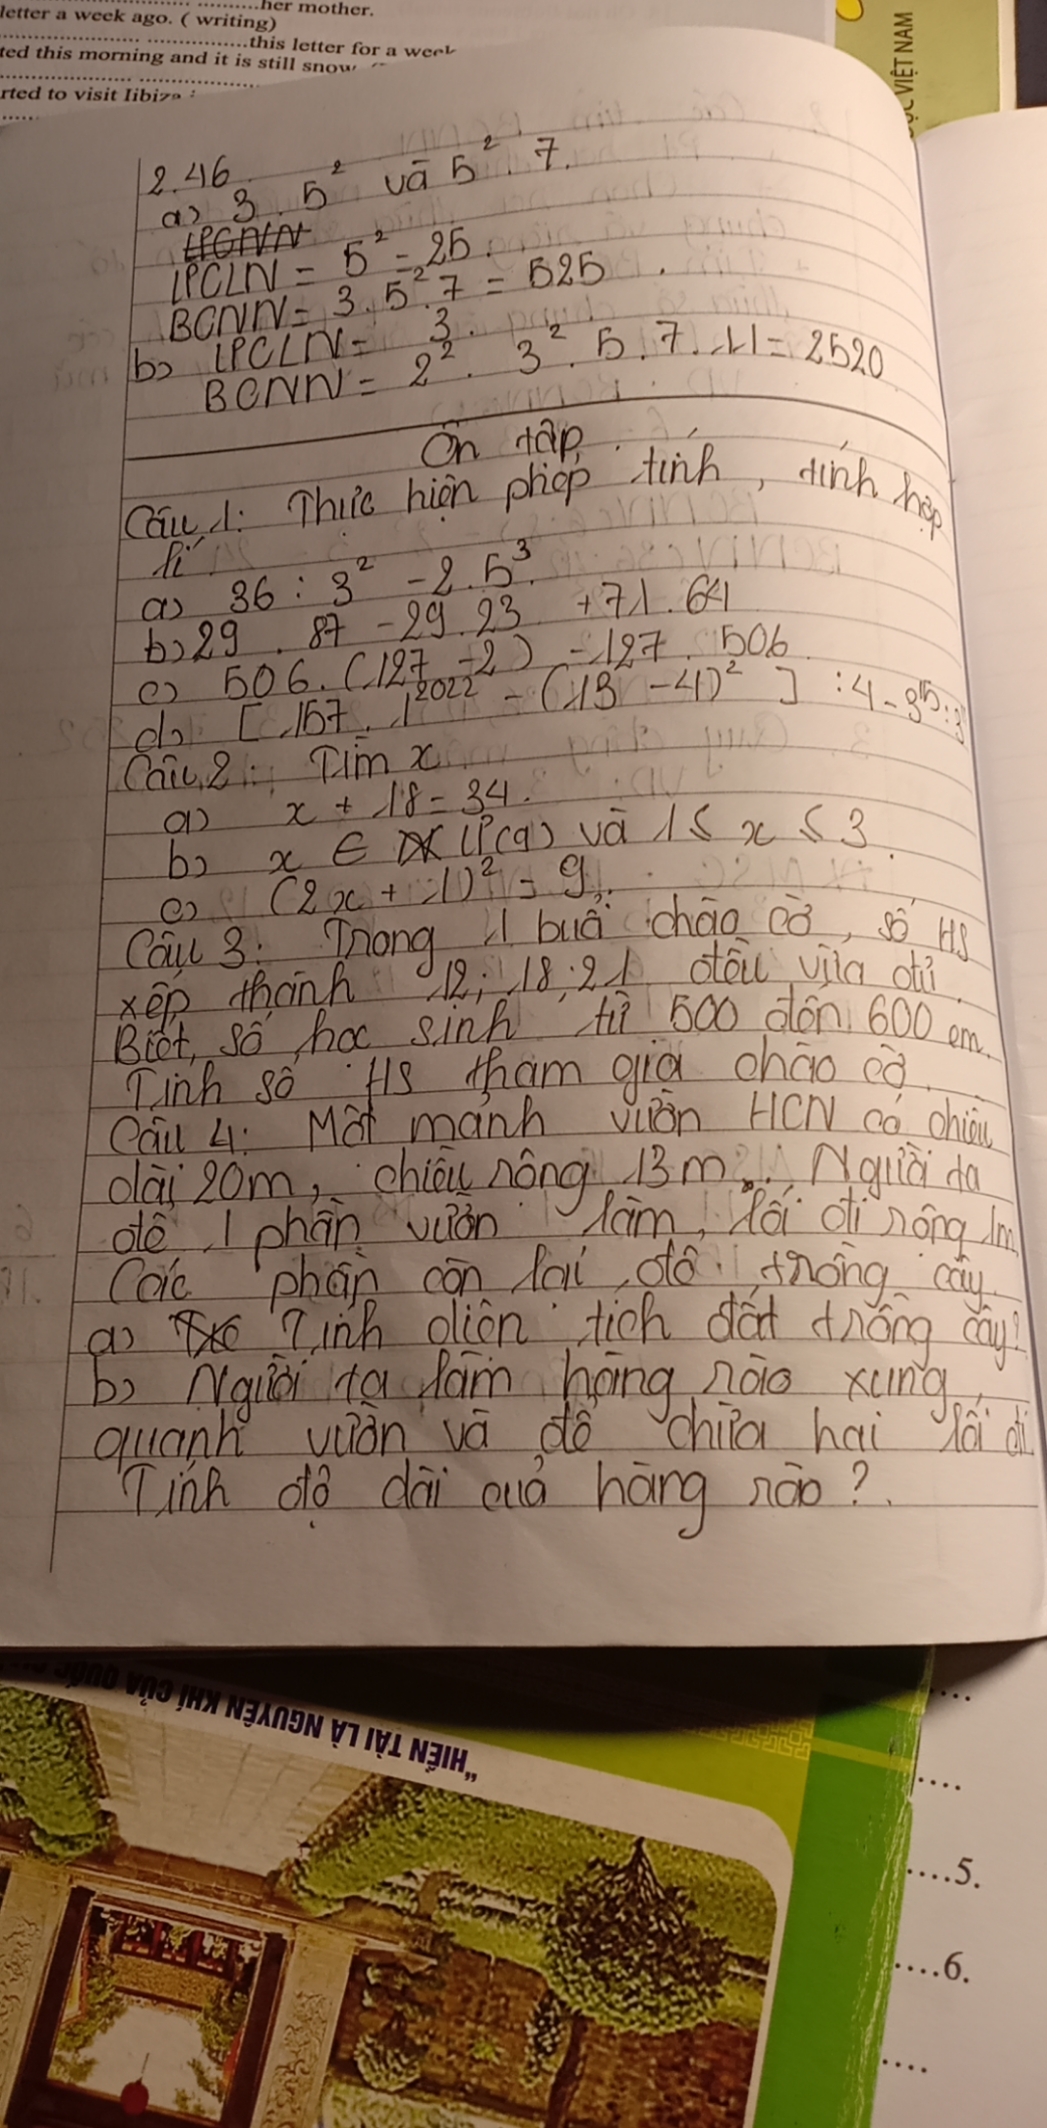 her mother.
letter a week ago. ( writing)
this letter for a week
ted this morning and it is still snow
rted to visit Iibiza
VIỆT NAM
2.46
a) 3 . 5² và 5² . 7.
ƯCNN
ƯCLN = 5² = 25.
BCNN = 3 . 5² . 7 = 525
b) ƯCLN = 3.
BCNN = 2² . 3² . 5 . 7 . 11 = 2520
Ôn tập
Câu 1: Thực hiện phép tính, tính hợp
lí
a) 36 : 3² - 2 . 5³.
b) 29 . 87 - 29 . 23 + 71 . 64
c) 506 . (127 - 2) - 127 . 506
d) [ 157 . 1²⁰²² - (13 - 4)² ] : 4 - 3¹⁵ : 3
Câu 2: Tìm x
a) x + 18 = 34.
b) x ∈ Ư(9) và 1 ≤ x ≤ 3.
c) (2x + 1)² = 9.
Câu 3: Trong 1 buổi chào cờ, số HS
xếp thành 12; 18; 21 đều vừa đủ.
Biết, số học sinh từ 500 đến 600 em.
Tính số HS tham gia chào cờ.
Câu 4: Một mảnh vườn HCN có chiều
dài 20m, chiều rộng 13m. Người ta
để 1 phần vườn làm lối đi rộng 1m
Các phần còn lại để trồng cây.
a) Tính diện tích đất trồng cây?
b) Người ta làm hàng rào xung
quanh vườn và để chừa hai lối đi
Tính độ dài quả hàng rào?.
"HIỀN TÀI LÀ NGUYÊN KHÍ CỦA QUỐC
....5.
....6.